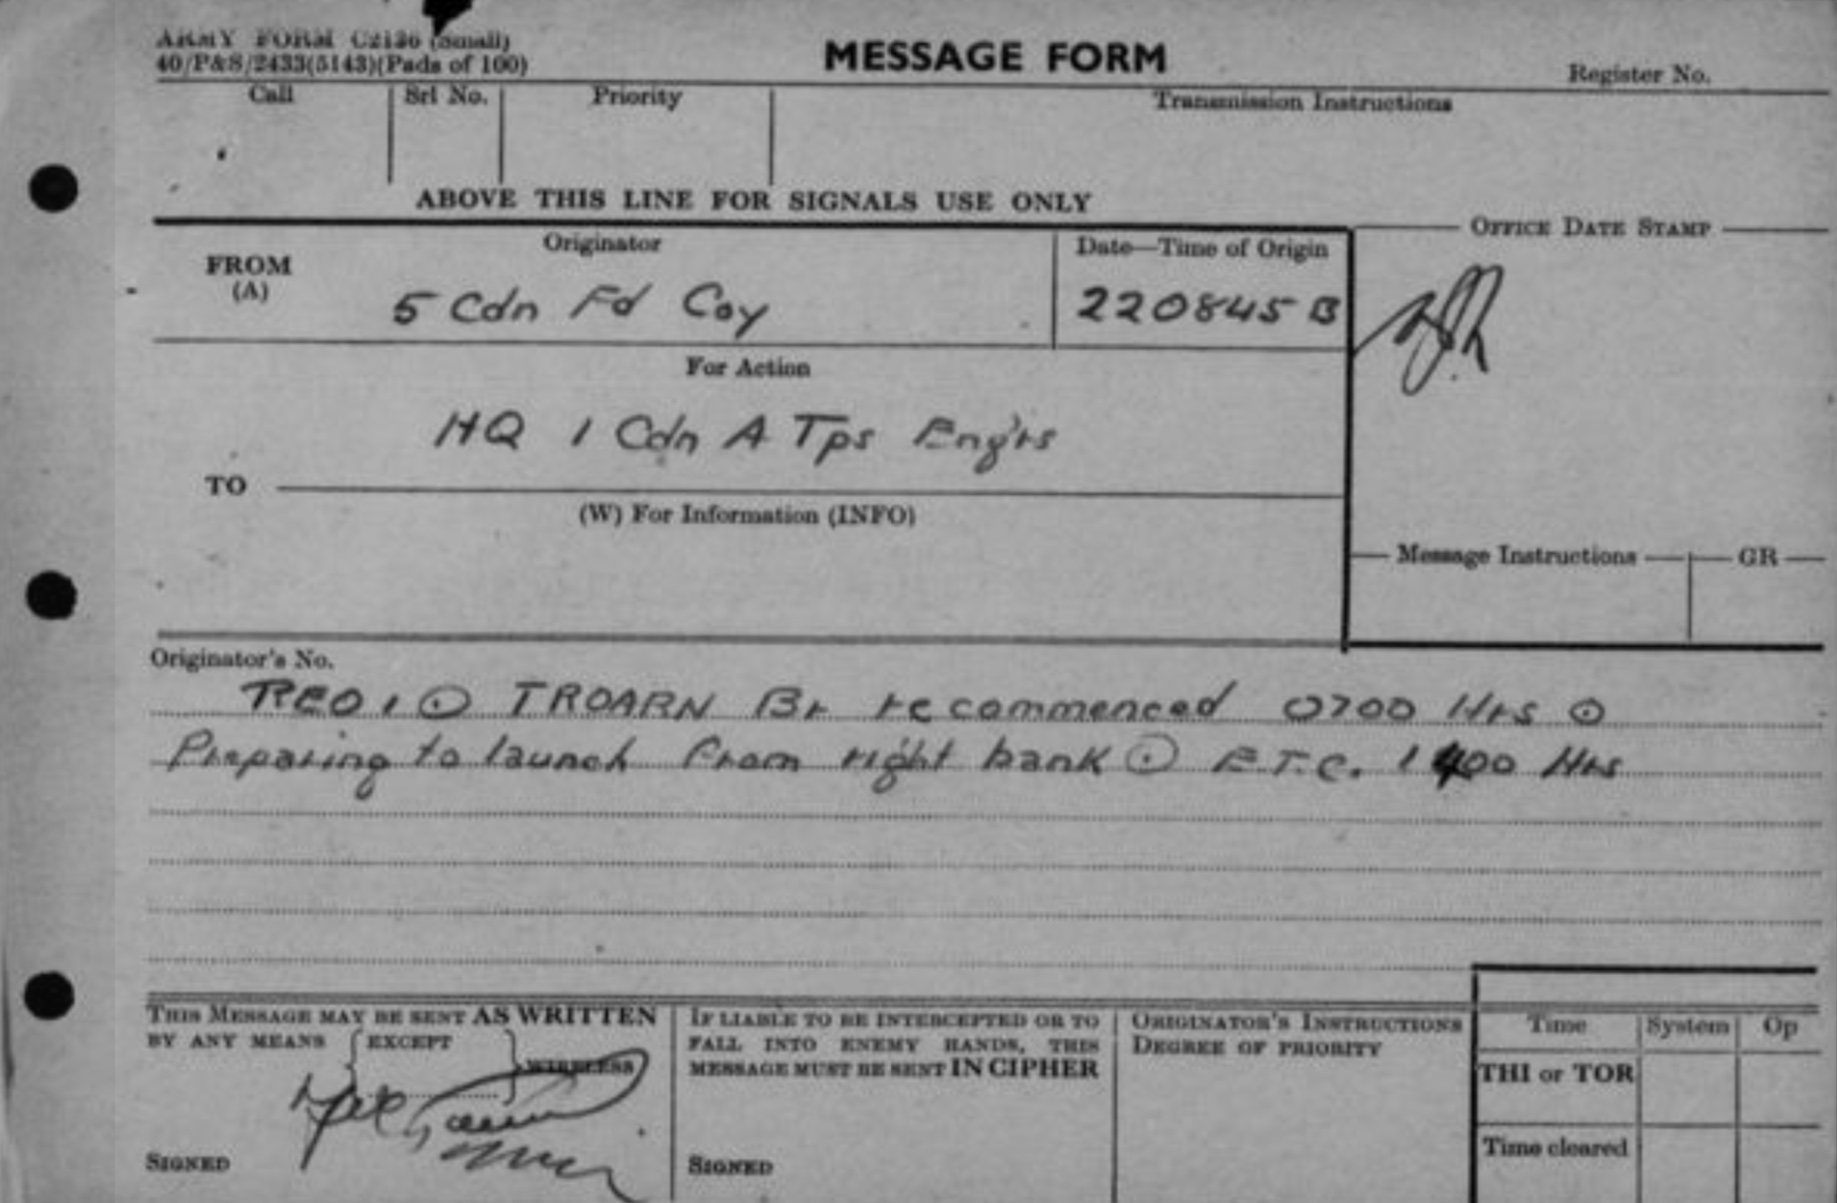 ARMY FORM C2136 (Small)
40/P&S/2433(5143)(Pads of 100)
MESSAGE FORM
Register No.
Call Srl No. Priority Transmission Instructions
ABOVE THIS LINE FOR SIGNALS USE ONLY
OFFICE DATE STAMP
FROM
(A)
Originator
Date—Time of Origin
5 Cdn Fd Coy
220845 B
For Action
HQ 1 Cdn A Tps Engrs
TO
(W) For Information (INFO)
Message Instructions GR
Originator's No.
REO 1 ⊙ TROARN Br recommenced 0700 Hrs ⊙
Preparing to launch from right bank ⊙ E.T.C. 1400 Hrs
THIS MESSAGE MAY BE SENT AS WRITTEN
BY ANY MEANS EXCEPT
WIRELESS
SIGNED
IF LIABLE TO BE INTERCEPTED OR TO
FALL INTO ENEMY HANDS, THIS
MESSAGE MUST BE SENT IN CIPHER
SIGNED
ORIGINATOR'S INSTRUCTIONS
DEGREE OF PRIORITY
Time System Op
THI or TOR
Time cleared